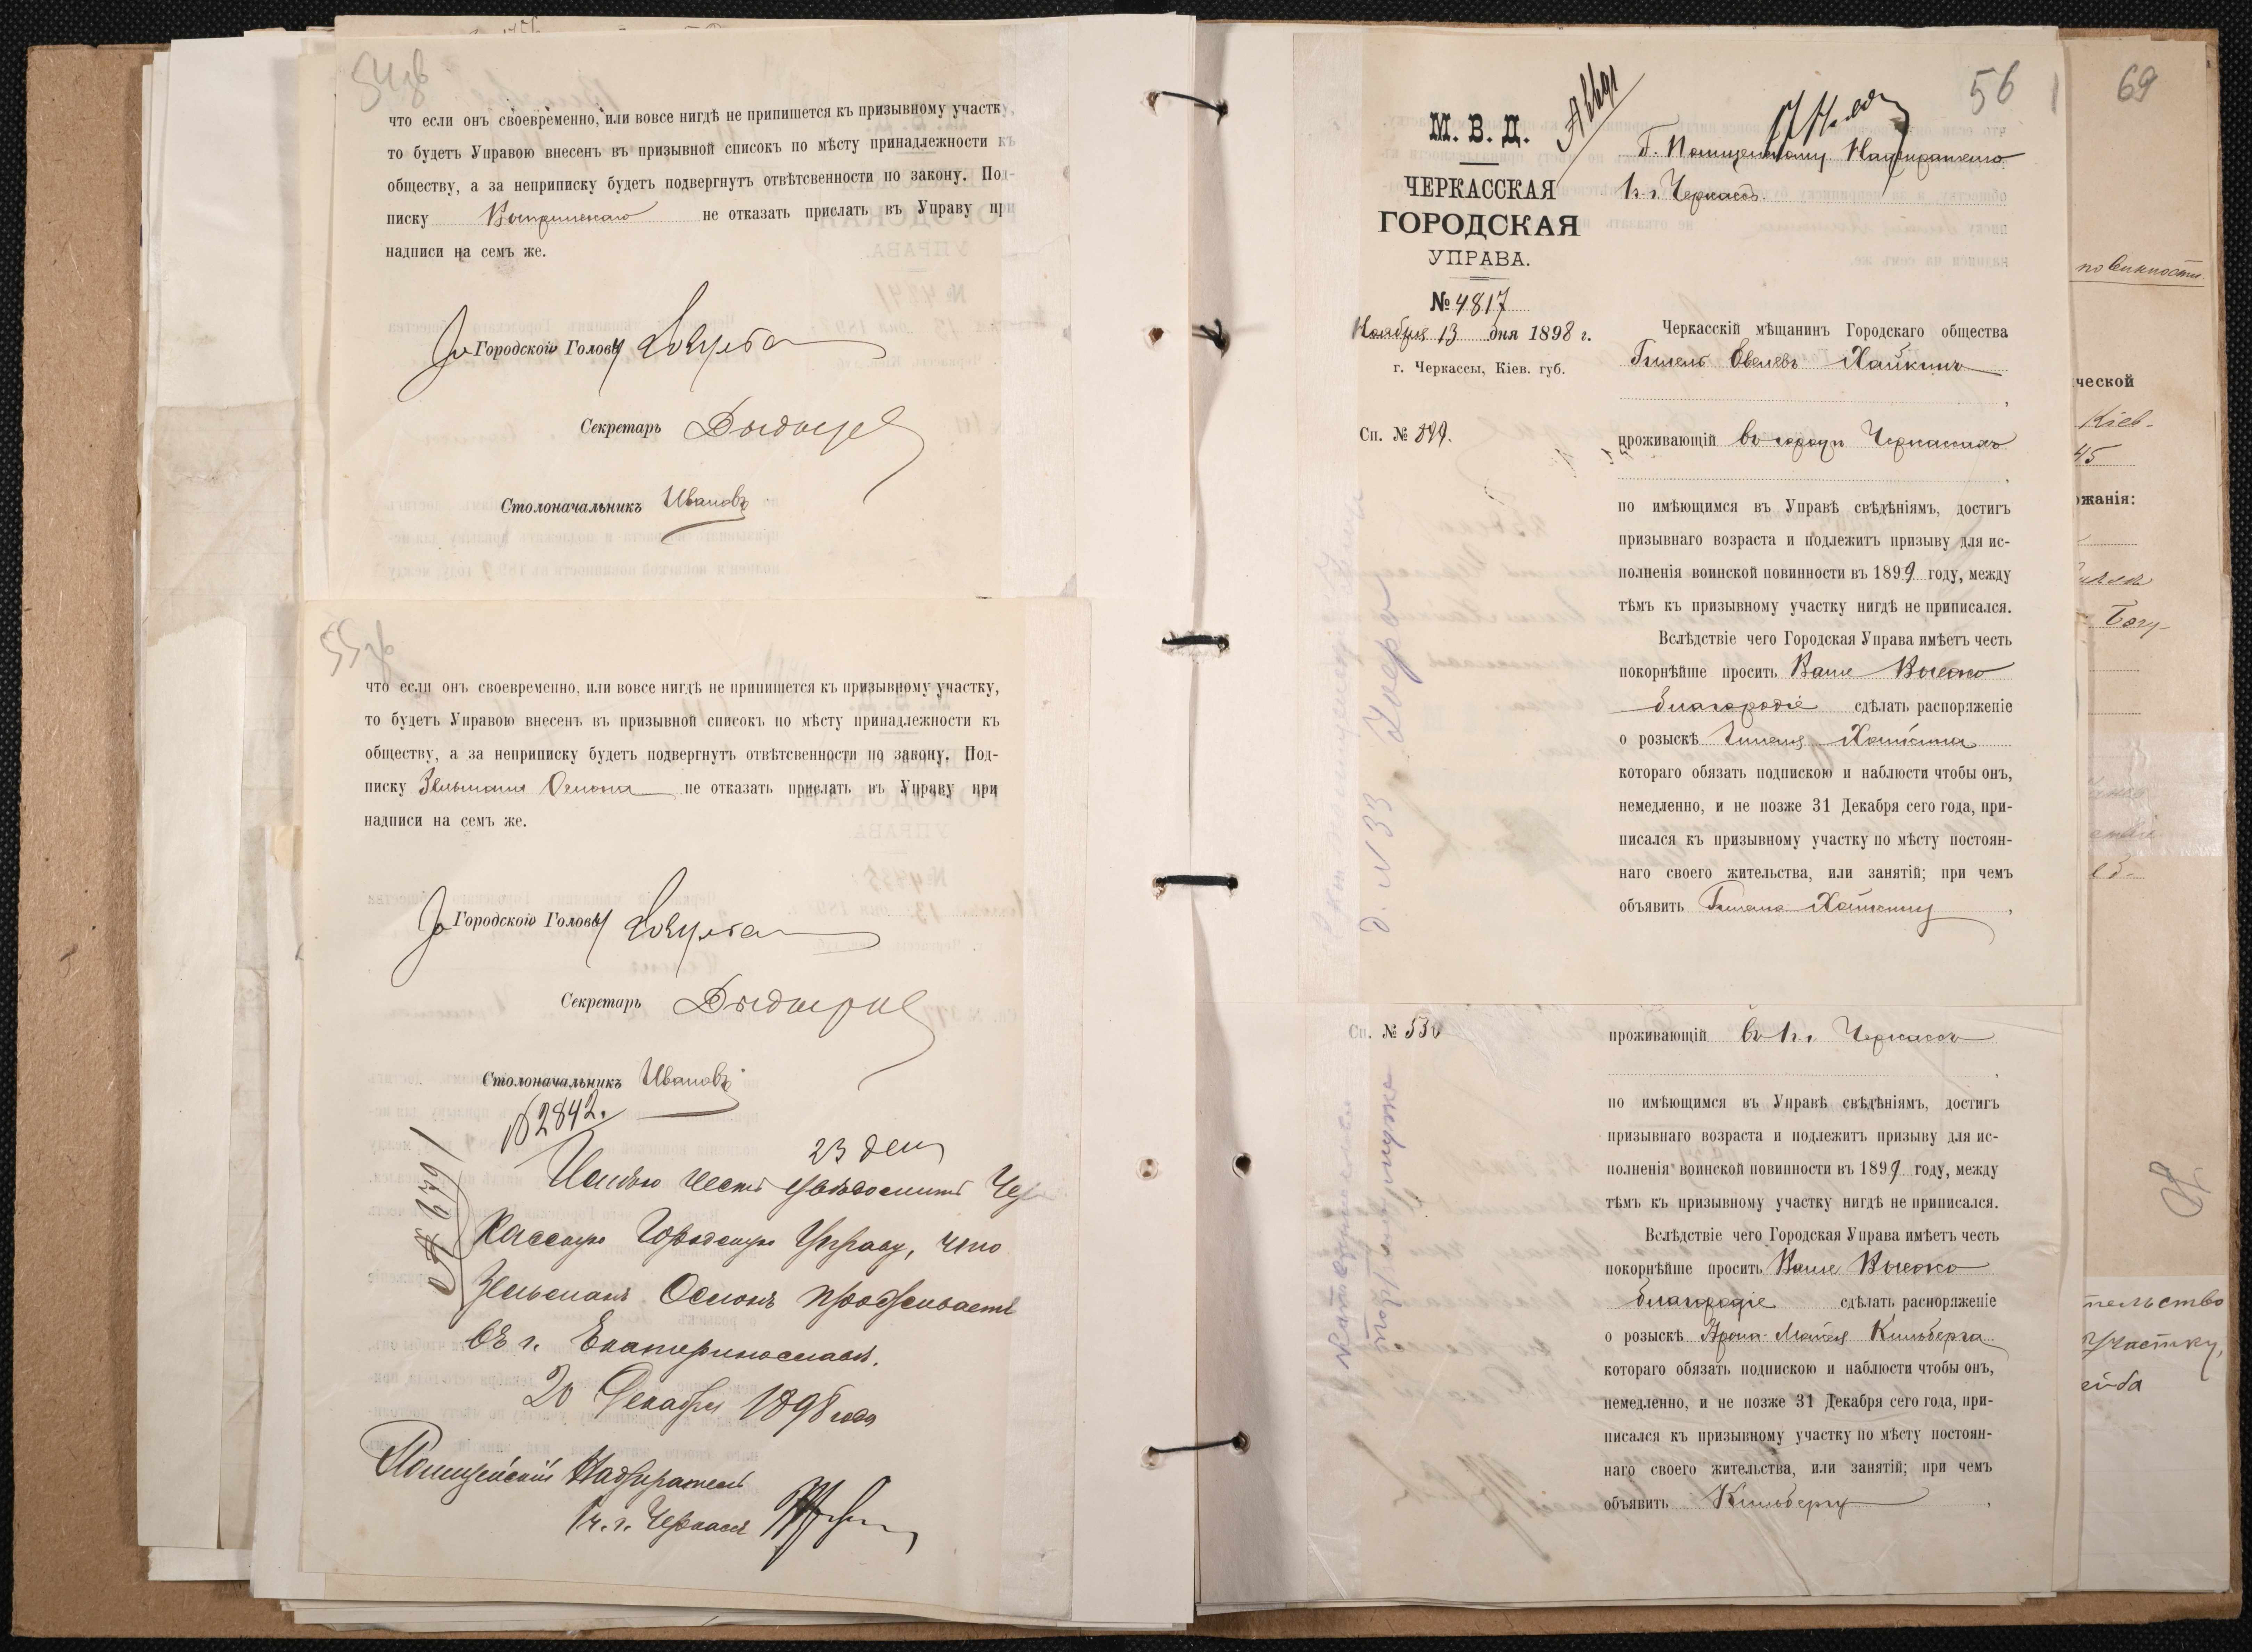 54зв
что если онъ своевременно, или вовсе нигдѣ не припишется къ призывному участку,
то будетъ Управою внесенъ въ призывной списокъ по мѣсту принадлежности къ
обществу, а за неприписку будетъ подвергнутъ отвѣтсвенности по закону. Под-
писку не отказать прислать въ Управу при
надписи на семъ же.
За Городского Голову
Секретарь
Столоначальникъ Ивановъ
55зв
что если онъ своевременно, или вовсе нигдѣ не припишется къ призывному участку,
то будетъ Управою внесенъ въ призывной списокъ по мѣсту принадлежности къ
обществу, а за неприписку будетъ подвергнутъ отвѣтсвенности по закону. Под-
писку Зельмана Осмона не отказать прислать въ Управу при
надписи на семъ же.
За Городского Голову
Секретарь
Столоначальникъ Ивановъ
№ 2842.
23 дек
Имѣю честь увѣдомить Чер
касскую Городскую Управу, что
Зельманъ Осмонъ проживаетъ
въ г. Екатеринославѣ.
20 Декабря 1898 года
Полицейскій Надзиратель
1 ч. г. Черкассъ
56
М. В. Д.
ЧЕРКАССКАЯ
ГОРОДСКАЯ
УПРАВА.
№ 4817
Ноября 13 дня 1898 г.
г. Черкассы, Кіев. губ.
Г. Полицейскому Надзирателю
1 ч. г. Черкассъ
Черкасскій мѣщанинъ Городскаго общества
Гилель Евелевъ Хайкинъ
Сп. № 599.
проживающій въ городѣ Черкассахъ
по имѣющимся въ Управѣ свѣдѣніямъ, достигъ
призывнаго возраста и подлежитъ призыву для ис-
полненія воинской повинности въ 1899 году, между
тѣмъ къ призывному участку нигдѣ не приписался.
Вслѣдствіе чего Городская Управа имѣетъ честь
покорнѣйше просить Ваше Высоко
благородіе сдѣлать распоряженіе
о розыскѣ Гилеля Хайкина
котораго обязать подпискою и наблюсти чтобы онъ,
немедленно, и не позже 31 Декабря сего года, при-
писался къ призывному участку по мѣсту постоян-
наго своего жительства, или занятій; при чемъ
объявить Хайкину,
д. №33
Сп. № 530
проживающій въ г. Черкассахъ
по имѣющимся въ Управѣ свѣдѣніямъ, достигъ
призывнаго возраста и подлежитъ призыву для ис-
полненія воинской повинности въ 1899 году, между
тѣмъ къ призывному участку нигдѣ не приписался.
Вслѣдствіе чего Городская Управа имѣетъ честь
покорнѣйше просить Ваше Высоко
благородіе сдѣлать распоряженіе
о розыскѣ Арона-Мойсея Кильберга
котораго обязать подпискою и наблюсти чтобы онъ,
немедленно, и не позже 31 Декабря сего года, при-
писался къ призывному участку по мѣсту постоян-
наго своего жительства, или занятій; при чемъ
объявить Кильбергу,
69
повинности
ческой
Кіев-
45
жанія:
Богу-
тельство
участку,